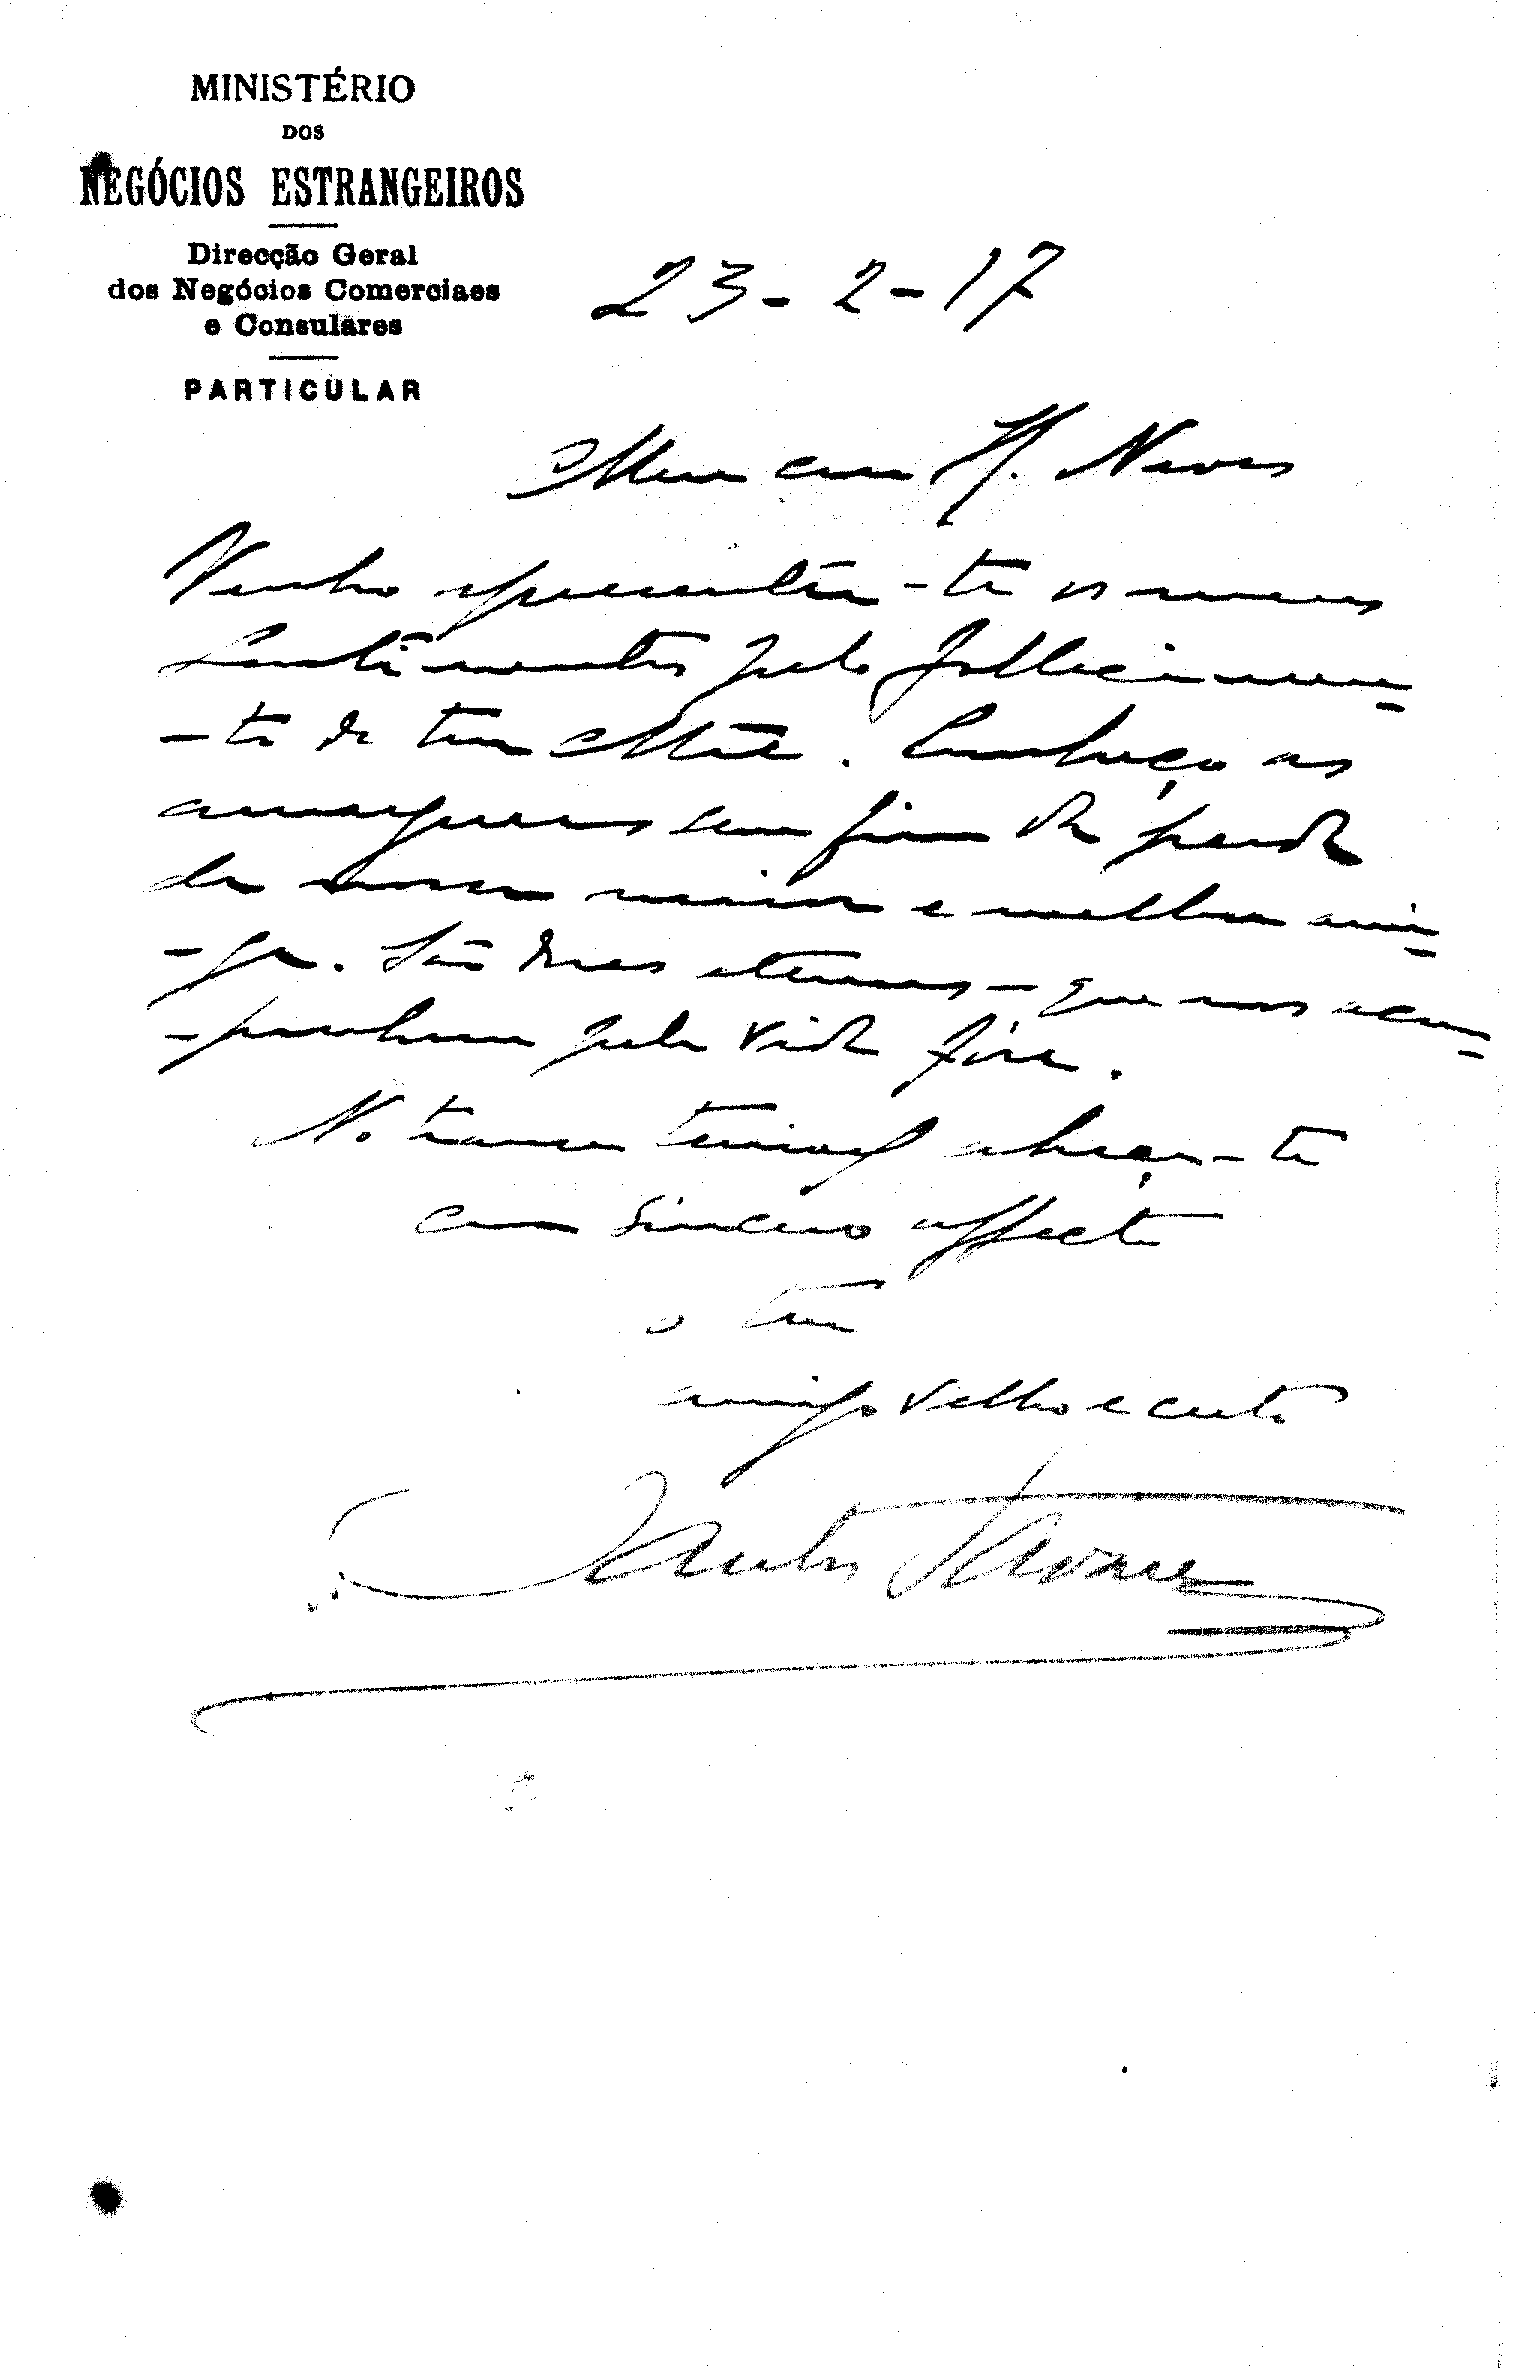 MINISTÉRIO
DOS
NEGÓCIOS ESTRANGEIROS
Direcção Geral
dos Negócios Comerciaes
e Consulares
PARTICULAR
23-2-17
Meu caro H. Neves
Venho apresentar-te os meus
sentimentos pelo fallecimen-
-to de tua Mãe. Conheço as
amarguras sem fim da perda
da nossa maior e melhor ami-
-ga. São dores eternas - que nos acom-
-panham pela vida fóra.
No transe terrivel abraça-te
com sincero affecto
o teu
amigo velho e certo
Santos Tavares